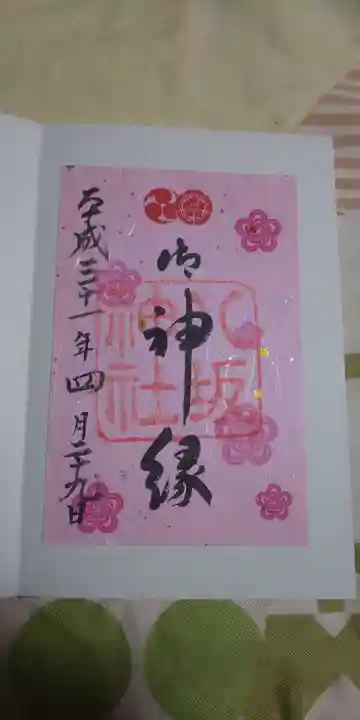 御神縁
八坂
神社
平成三十一年四月二十九日